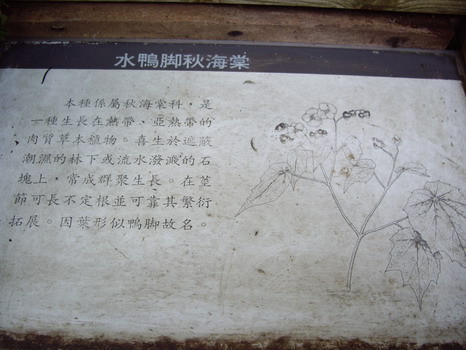 水鴨脚秋海棠
本種係屬秋海棠科，是
一種生長在熱帶、亞熱帶的
肉質草本植物。喜生於遮蔽
潮濕的林下或流水潑濺的石
塊上，常成群聚生長。在莖
節可長不定根並可靠其繁衍
拓展。因葉形似鴨脚故名。